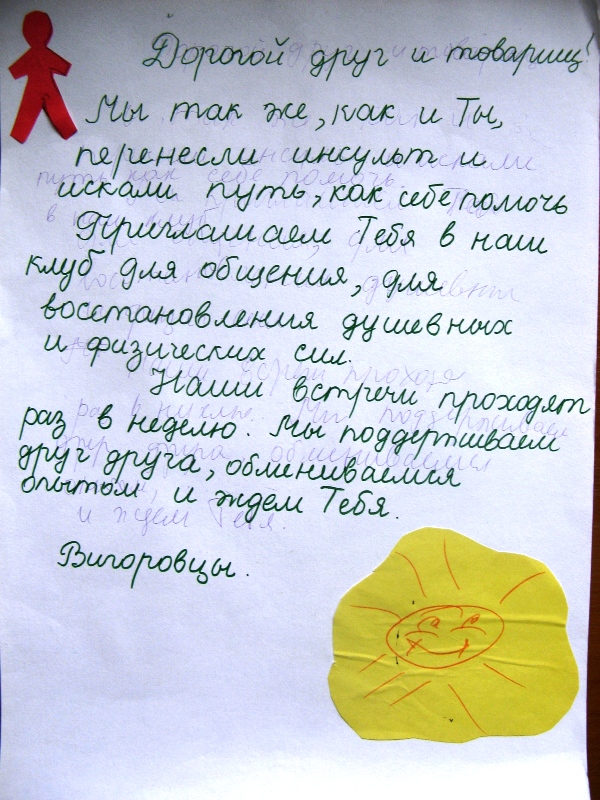 Дорогой друг и товарищ!
Мы так же, как и Ты,
перенесли инсульт и
искали путь, как себе помочь
Приглашаем Тебя в наш
клуб для общения, для
восстановления душевных
и физических сил.
Наши встречи проходят
раз в неделю. Мы поддерживаем
друг друга, обмениваемся
опытом, и ждем Тебя.
Вигоровцы.